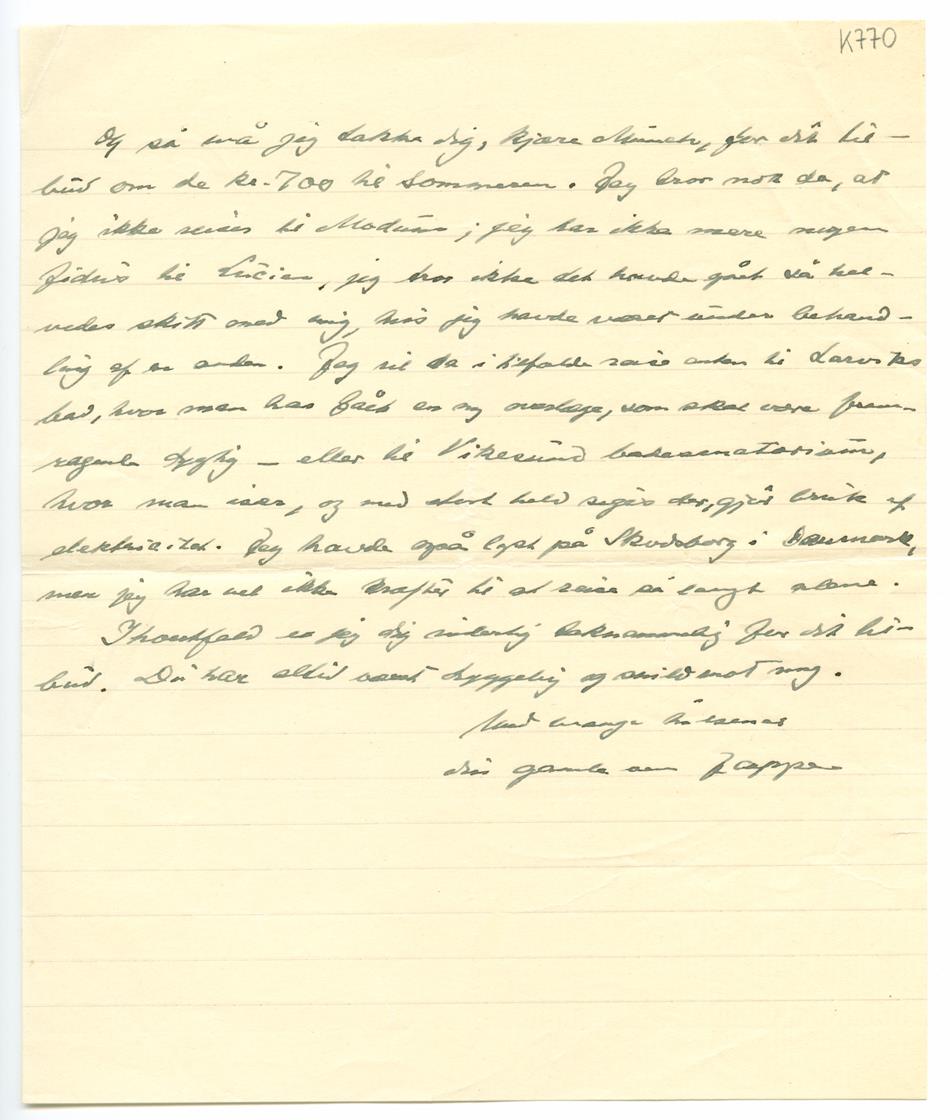 K770
Og så må jeg takke dig, kjære Munch, for dit til-
bud om de kr. 700 til sommeren. Jeg tror nok da, at
jeg ikke reiser til Modum; jeg har ikke mere nogen
fidus til Lucian, jeg tror ikke det havde gået så hel-
vedes skitt med mig, hvis jeg havde været under behand-
ling af en anden. Jeg vil da i tilfælde reise enten til Larviks
bad, hvor man har fået en ny overlæge, som skal være frem-
ragende dygtig — eller til Vikesund badesanatorium,
hvor man især, og med stort held siges der, gjør bruk af
elektricitet. Jeg havde også lyst på Skodsborg i Danmark,
men jeg har vel ikke kræfter til at reise så langt alene.
I hvertfald er jeg dig inderlig taknemmelig for dit til-
bud. Du har altid været hyggelig og snild mot mig.
Med mange hilsener
din gamle ven Jappe